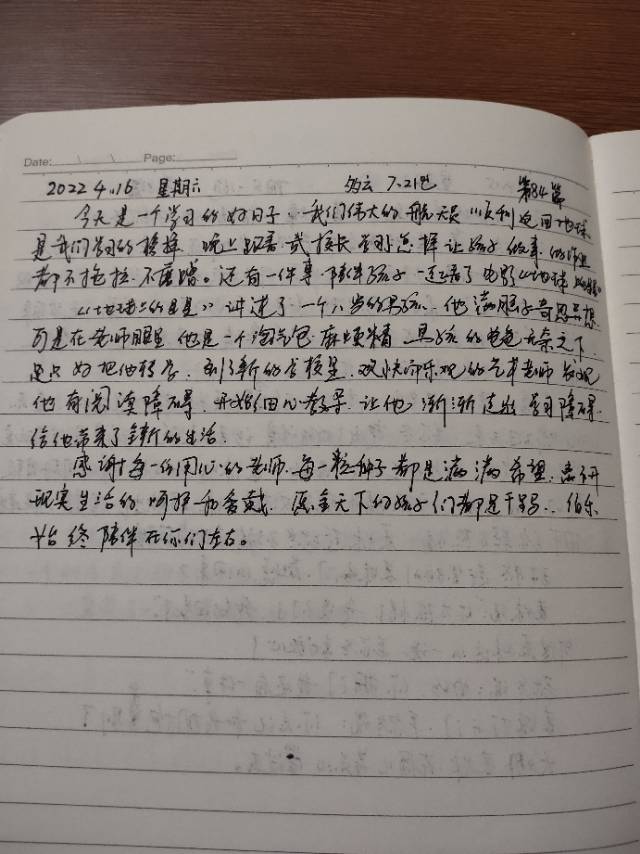 Date: / / Page:
2022 4.16 星期六 多云 7-21℃ 第84篇
今天是一个学习的好日子,我们伟大的航天员顺利返回地球
是我们学习的榜样 晚上跟着武校长学习怎样让孩子做事 的作业
都不拖拉,不磨蹭。还有一件事 陪伴孩子一起看了电影《地球上的星星》
《地球上的星星》讲述了一个八岁的男孩,他满脑子奇思异想
可是在老师眼里 他是一个淘气包 麻烦精 男孩的爸爸无奈之下
只好把他转学,到了新的学校里,双快而乐观的艺术老师发现
他有阅读障碍,开始细心教导 让他渐渐走出学习障碍
给他带来了全新的生活.
感谢每一位用心的老师,每一粒种子都是满满希望,离不开
现实生活的呵护和爱戴,愿全天下的孩子们都是千里马,伯乐
始终陪伴在你们左右。